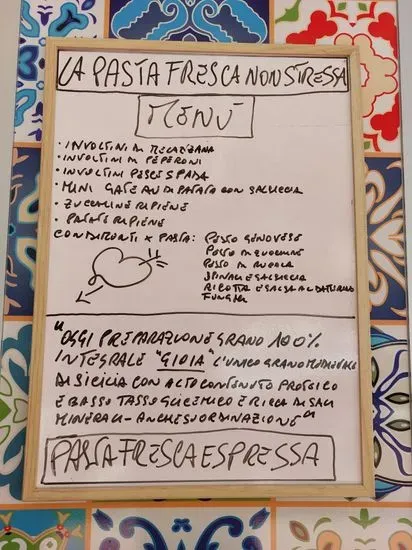 LA PASTA FRESCA NON STRESSA
MENÚ
• INVOLTINI DI MELANZANA
• INVOLTINI DI PEPERONI
• INVOLTINI PESCE SPADA
• MINI GATEAU DI PATATE CON SALSICCIA
• ZUCCHINE RIPIENE
• PATATE RIPIENE
CONDIMENTI X PASTA: PESTO GENOVESE
PESTO DI ZUCCHINE
PESTO DI RUCOLA
SPINACI E SALSICCIA
RICOTTA E SALSA AL DATTERINO
FUNGHI
"OGGI PREPARAZIONE GRANO 100%
INTEGRALE "GIOIA" L'UNICO GRANO
DI SICILIA CON ALTO CONTENUTO PROTEICO
E BASSO TASSO GLICEMICO E RICCA DI SALI
MINERALI - ANCHE SU ORDINAZIONE"
PASTA FRESCA ESPRESSA